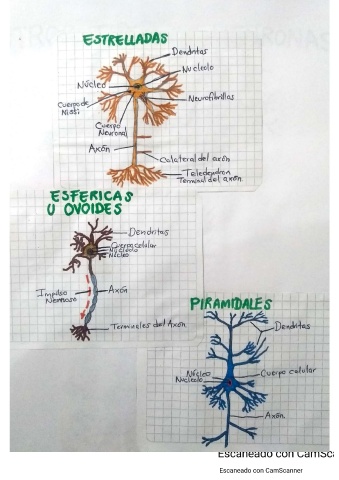 ESTRELLADAS
Dendritas
Nucleolo
Núcleo
Neurofibrillas
Cuerpo de
Nissl
Cuerpo
Neuronal
Axón
Colateral del axón
Teledendron
Terminal del axón
ESFERICAS
U OVOIDES
Dendritas
Cuerpo celular
Nucleolo
Núcleo
Impulso
Nervioso
Axón
Terminales del Axón
PIRAMIDALES
Dendritas
Núcleo
Nucleolo
Cuerpo celular
Axón
Escaneado con CamSca
Escaneado con CamScanner